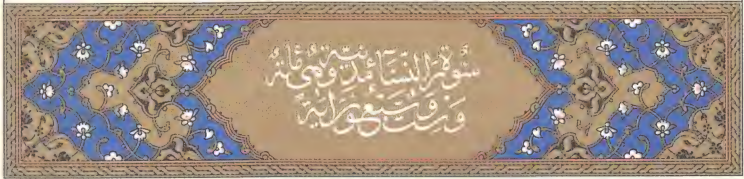 سورة النسآء مدنية وهي مائة
وست وسبعون اية